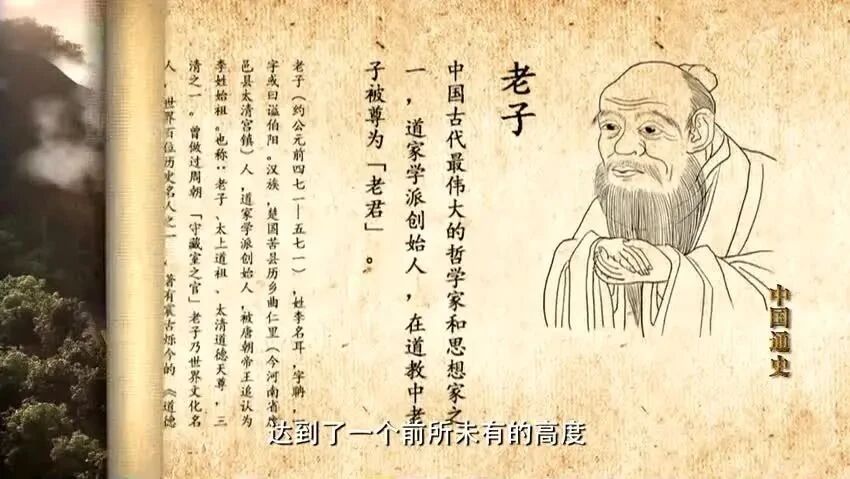 老子
中国古代最伟大的哲学家和思想家之
一，道家学派创始人，在道教中老
子被尊为「老君」。
老子（约公元前四七一—五七一），姓李名耳，字聃，
字或曰谥伯阳。汉族，楚国苦县历乡曲仁里（今河南省鹿
邑县太清宫镇）人，道家学派创始人，被唐朝帝王追认为
李姓始祖。也称：老子、太上道祖、太清道德天尊，三
清之一。曾做过周朝「守藏室之官」老子乃世界文化名
人，世界百位历史名人之一，著有震古烁今的《道德
中国通史
达到了一个前所未有的高度